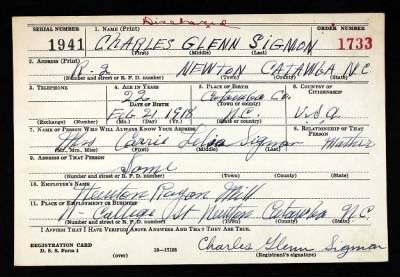 Discharged
SERIAL NUMBER 1. NAME (Print) ORDER NUMBER
1941 CHARLES GLENN SIGMON 1733
(First) (Middle) (Last)
2. ADDRESS (Print)
R-2 NEWTON CATAWBA N.C.
(Number and street or R. F. D. number) (Town) (County) (State)
3. TELEPHONE 4. AGE IN YEARS 5. PLACE OF BIRTH 6. COUNTRY OF CITIZENSHIP
22 Catawba Co.
DATE OF BIRTH (Town or county)
Feb 2, 1918 N.C. U.S.A.
(Exchange) (Number) (Mo.) (Day) (Yr.) (State or country)
7. NAME OF PERSON WHO WILL ALWAYS KNOW YOUR ADDRESS 8. RELATIONSHIP OF THAT PERSON
Mrs Carrie Sigmon Mother
(Mr., Mrs., Miss) (First) (Middle) (Last)
9. ADDRESS OF THAT PERSON
Same
(Number and street or R. F. D. number) (Town) (County) (State)
10. EMPLOYER'S NAME
Newton Rayon Mill
11. PLACE OF EMPLOYMENT OR BUSINESS
N- College St Newton Catawba N.C.
(Number and street or R. F. D. number) (Town) (County) (State)
I AFFIRM THAT I HAVE VERIFIED ABOVE ANSWERS AND THAT THEY ARE TRUE.
REGISTRATION CARD
D. S. S. Form 1 (over) 16-17105
Charles Glenn Sigmon
(Registrant's signature)